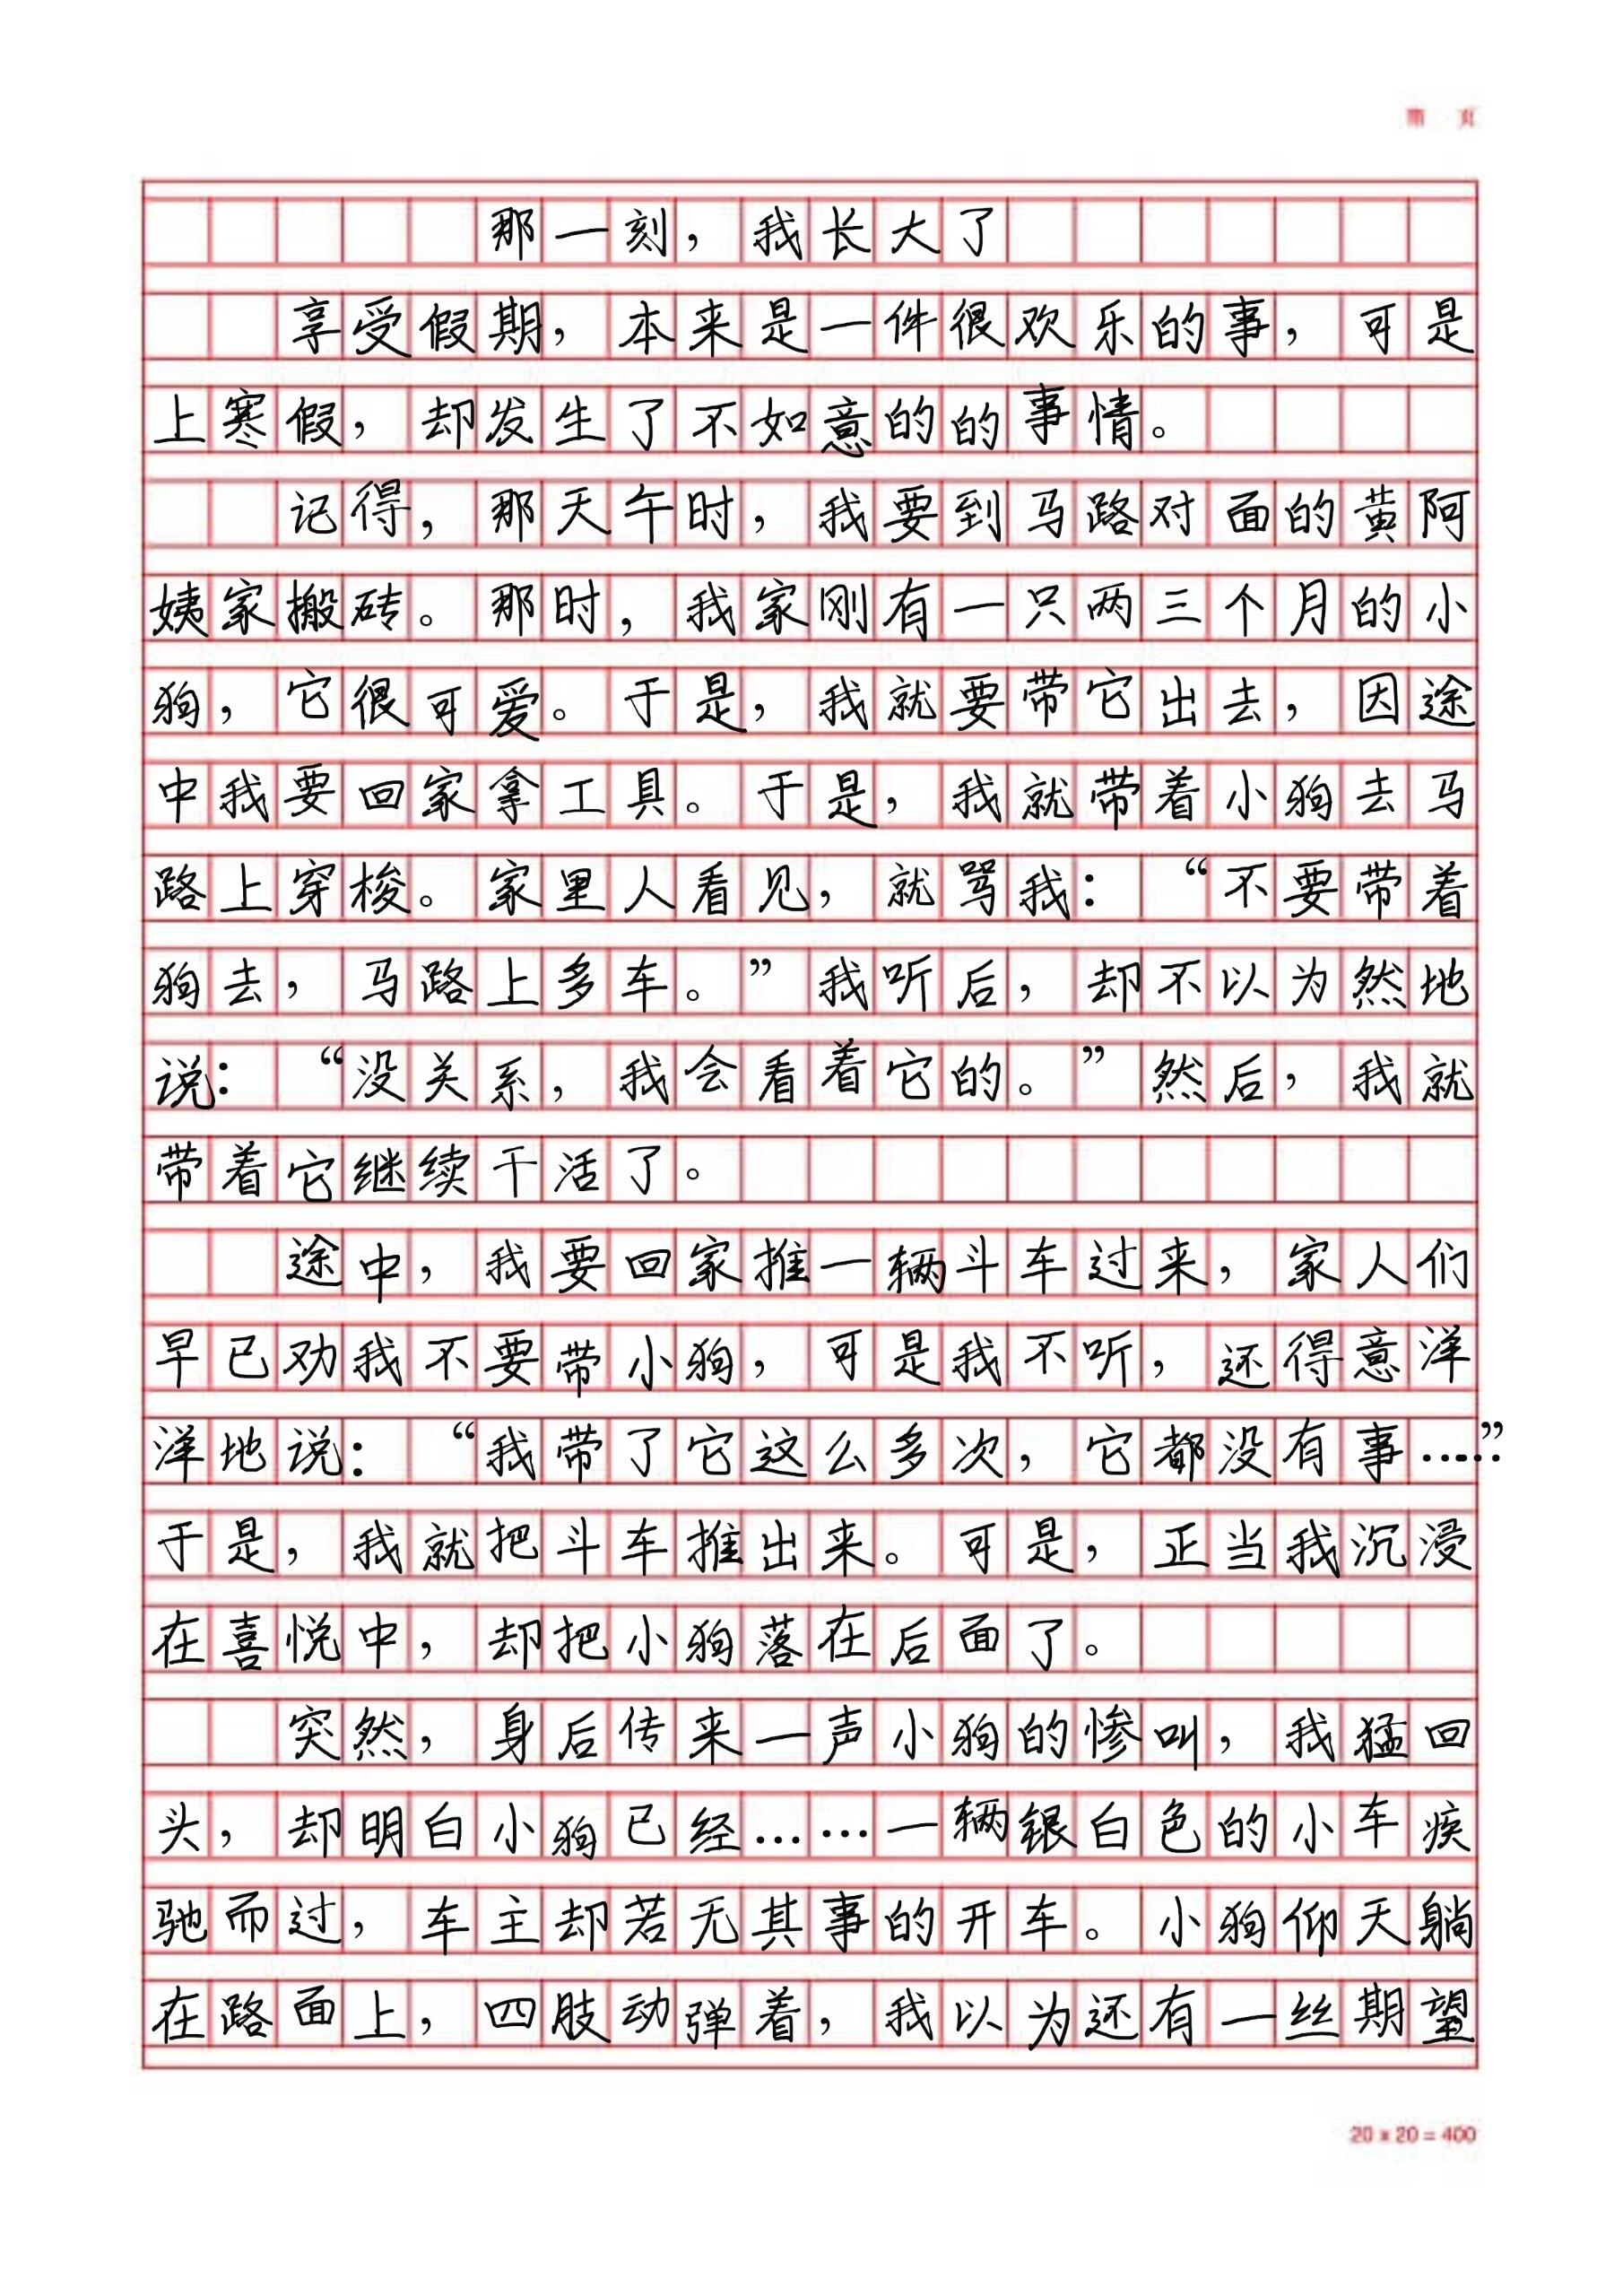 第 页
那一刻，我长大了
享受假期，本来是一件很欢乐的事，可是
上寒假，却发生了不如意的的事情。
记得，那天午时，我要到马路对面的黄阿
姨家搬砖。那时，我家刚有一只两三个月的小
狗，它很可爱。于是，我就要带它出去，因途
中我要回家拿工具。于是，我就带着小狗去马
路上穿梭。家里人看见，就骂我：“不要带着
狗去，马路上多车。”我听后，却不以为然地
说：“没关系，我会看着它的。”然后，我就
带着它继续干活了。
途中，我要回家推一辆斗车过来，家人们
早已劝我不要带小狗，可是我不听，还得意洋
洋地说：“我带了它这么多次，它都没有事……”
于是，我就把斗车推出来。可是，正当我沉浸
在喜悦中，却把小狗落在后面了。
突然，身后传来一声小狗的惨叫，我猛回
头，却明白小狗已经……一辆银白色的小车疾
驰而过，车主却若无其事的开车。小狗仰天躺
在路面上，四肢动弹着，我以为还有一丝期望
20×20=400